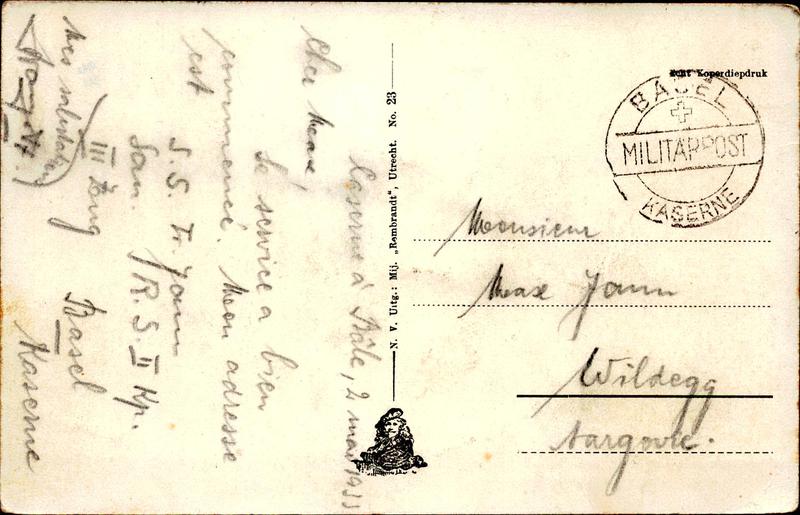 Caserne à Bâle, 2 mai 1933
Cher Max
Le service a bien
commencé. Mon adresse
est
S. S. Tr. Jann
San. R. S. II Kp.
III Zug Basel
Kaserne
Mes salutations
N. V. Uitg.: Mij. „Rembrandt", Utrecht. No. 23
Echt Koperdiepdruk
BASEL
MILITÄRPOST
KASERNE
Monsieur
Max Jann
Wildegg
Aargovie.